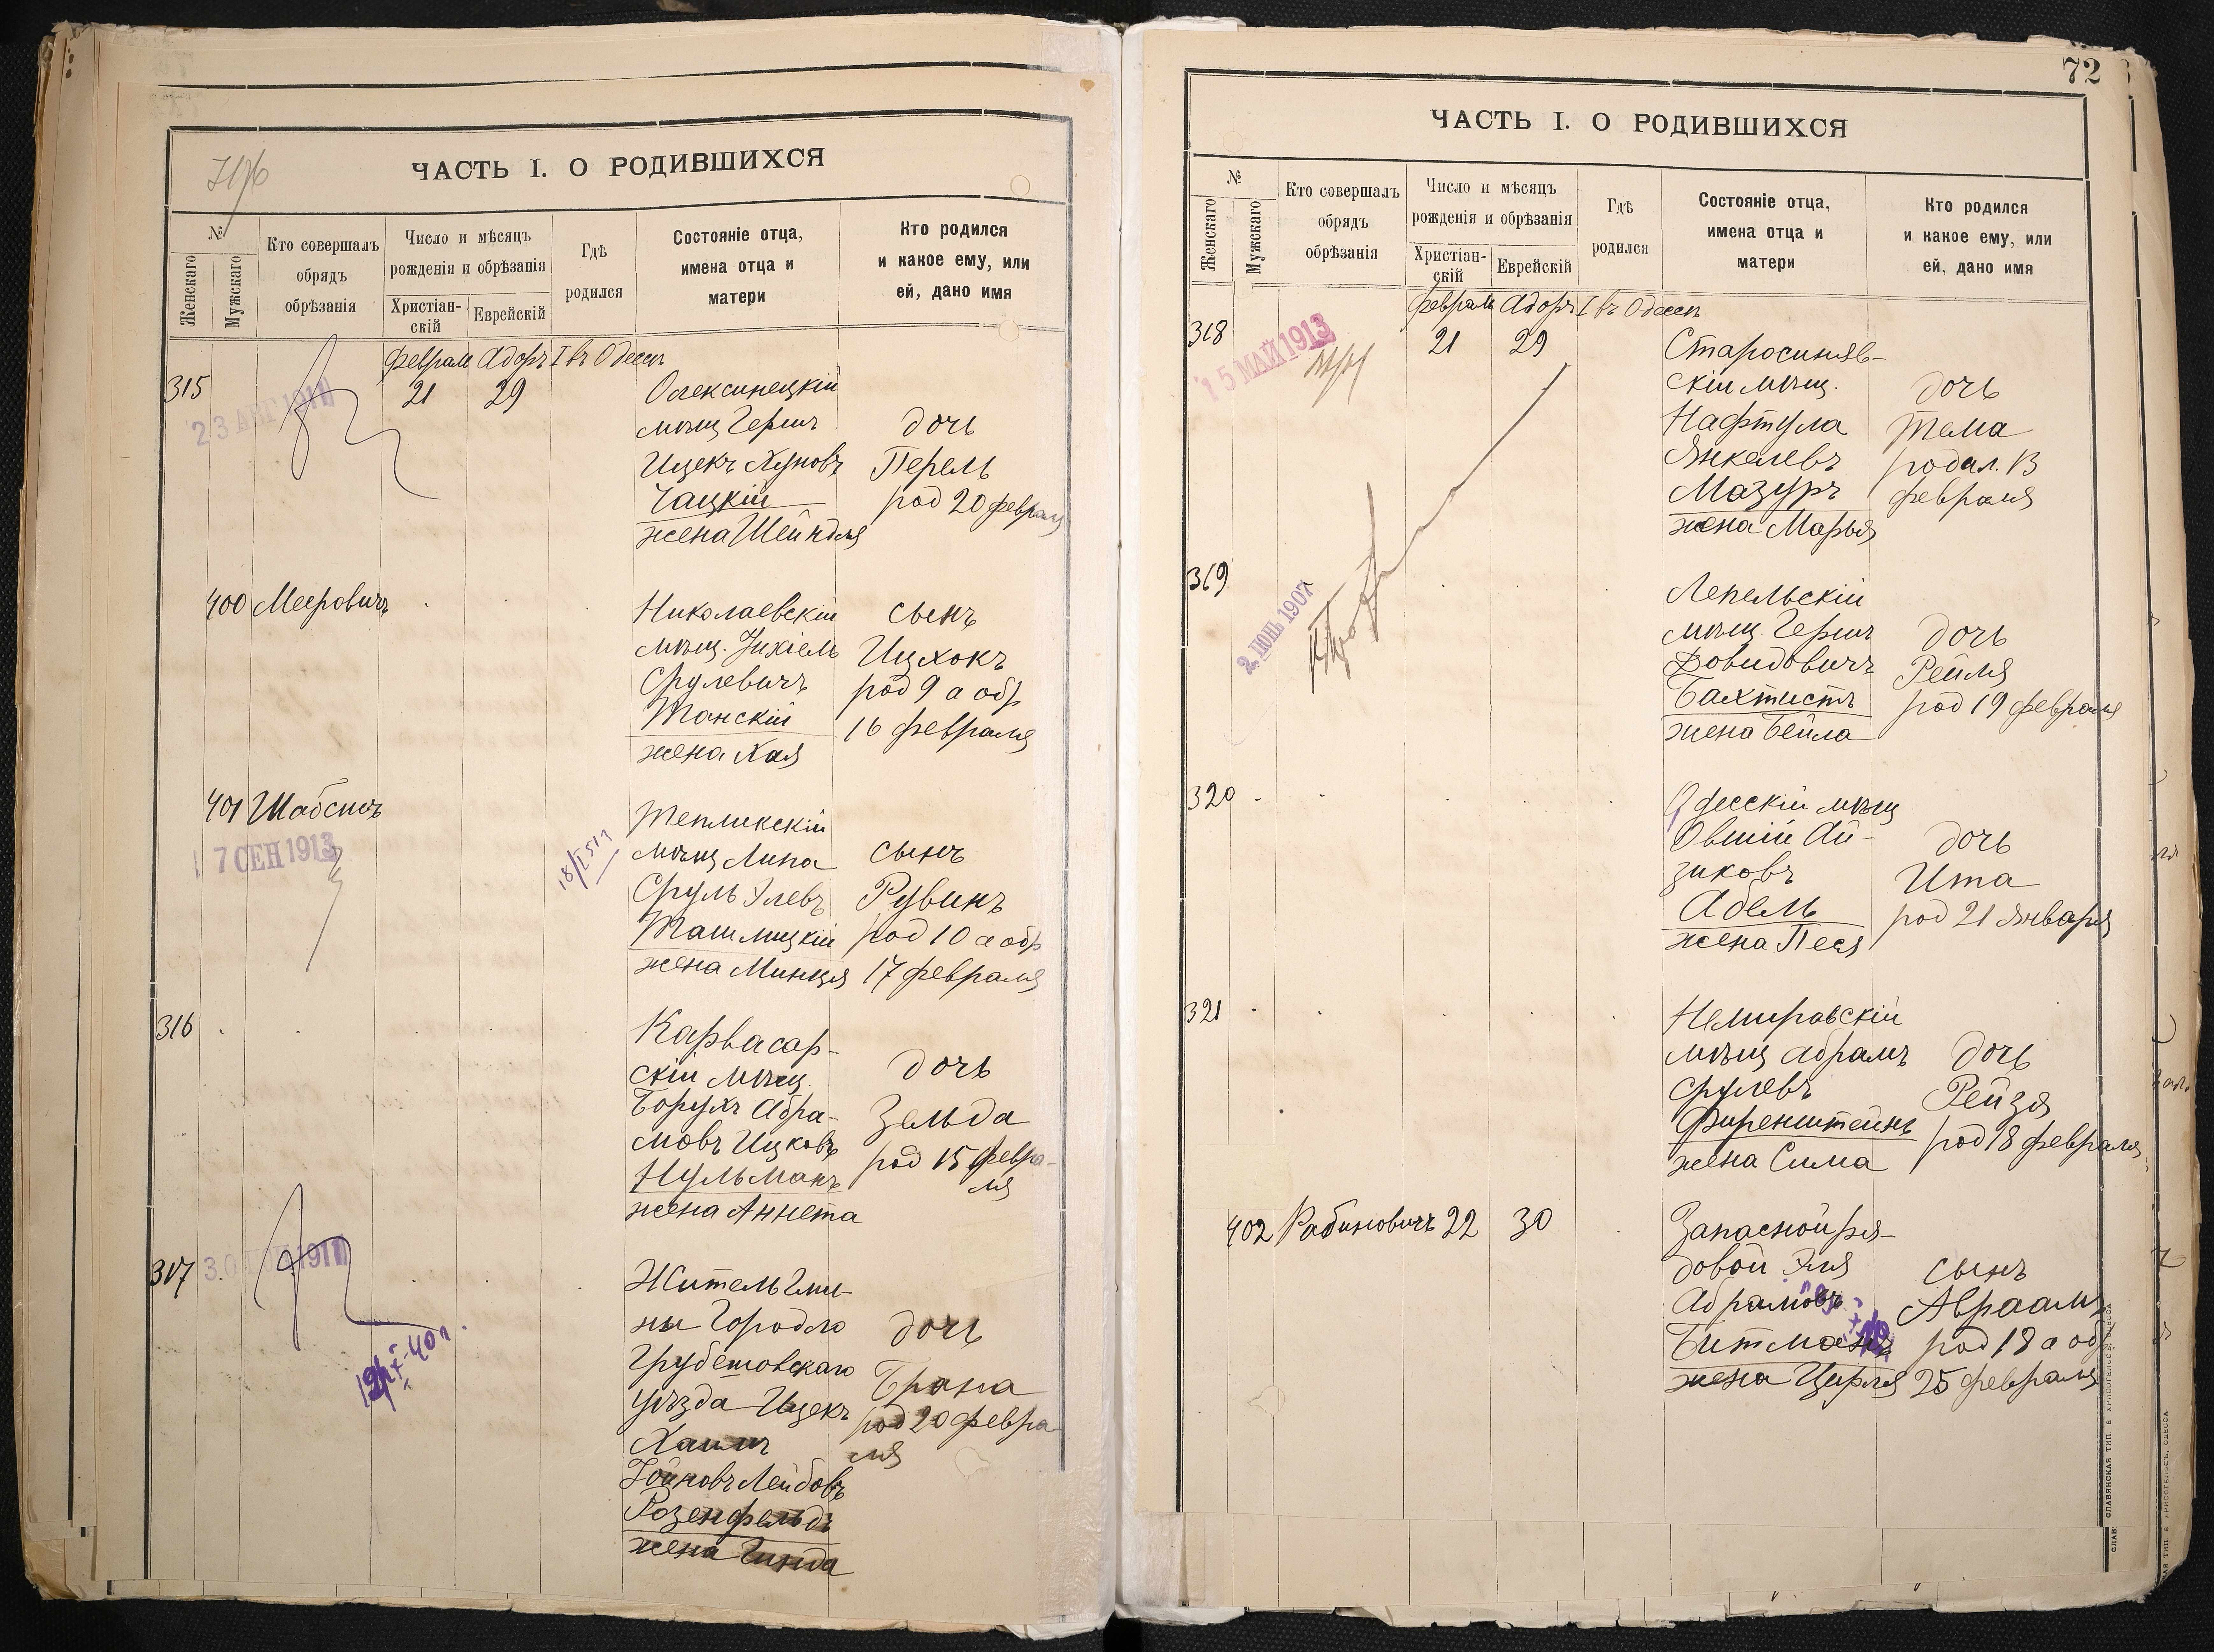 ЧАСТЬ I. О РОДИВШИХСЯ
№
Женскаго
Мужскаго
Кто совершалъ
обрядъ
обрѣзанія
Число и мѣсяцъ
рожденія и обрѣзанія
Христіан-
скій
Еврейскій
Гдѣ
родился
Состояніе отца,
имена отца и
матери
Кто родился
и какое ему, или
ей, дано имя
Февраля Адоръ I въ Одессѣ
315
23 АВГ 1911
21
29
Олексинецкій
мѣщ Герш
Ицекъ Хуновъ
Чацкій
жена Шейндля
дочь
Перель
род 20 февраля
400 Мееровичъ
Николаевскій
мѣщ. Ихіель
Срулевичъ
Танскій
жена Хая
сынъ
Ицхокъ
род 9 а обр
16 февраля
401 Шабсисъ
7 СЕН 1913
Тепликскій
мѣщ Липа
Сруль Элевъ
Ташлицкій
жена Минця
сынъ
Рувинъ
род 10 а обр
17 февраля
316
Карвасар-
скій мѣщ.
Борухъ Абра-
мовъ Ицковъ
Нульманъ
жена Аннета
дочь
Зельда
род 15 февра-
ля
317
Житель Гми-
ны Городло
Грубешовскаго
уѣзда Ицекъ
Хаимъ
Лейбовъ
Розенфельдъ
жена Гинда
дочь
Брана
род 20 февра
ля
72
ЧАСТЬ I. О РОДИВШИХСЯ
№
Женскаго
Мужскаго
Кто совершалъ
обрядъ
обрѣзанія
Число и мѣсяцъ
рожденія и обрѣзанія
Христіан-
скій
Еврейскій
Гдѣ
родился
Состояніе отца,
имена отца и
матери
Кто родился
и какое ему, или
ей, дано имя
Февраля Адоръ I въ Одессѣ
318
15 МАЙ 1913
21
29
Старосиняв-
скій мѣщ.
Нафтула
Янкелевъ
Мазуръ
жена Марья
дочь
Тема
родил. 13
февраля
319
1907
Лепельскій
мѣщ. Герш
Довидовичъ
Бахтистъ
жена Бейла
дочь
Рейля
род 19 февраля
320
Одесскій мѣщ
Овшій Ай-
зиковъ
Абель
жена Песя
дочь
Ита
род 21 Января
321
Немировскій
мѣщ Абрамъ
Срулевъ
Фиренштейнъ
жена Сима
дочь
Рейзя
род 18 февраля
402 Рабиновичъ 22 30
Запасной ря-
довой Эля
Абрамовъ
Битманъ
жена Цирля
сынъ
Авраамъ
род 18 а обр
25 февраля
СЛАВЯНСКАЯ ТИП. Е. ХРИСОГЕЛОСЪ, ОДЕССА